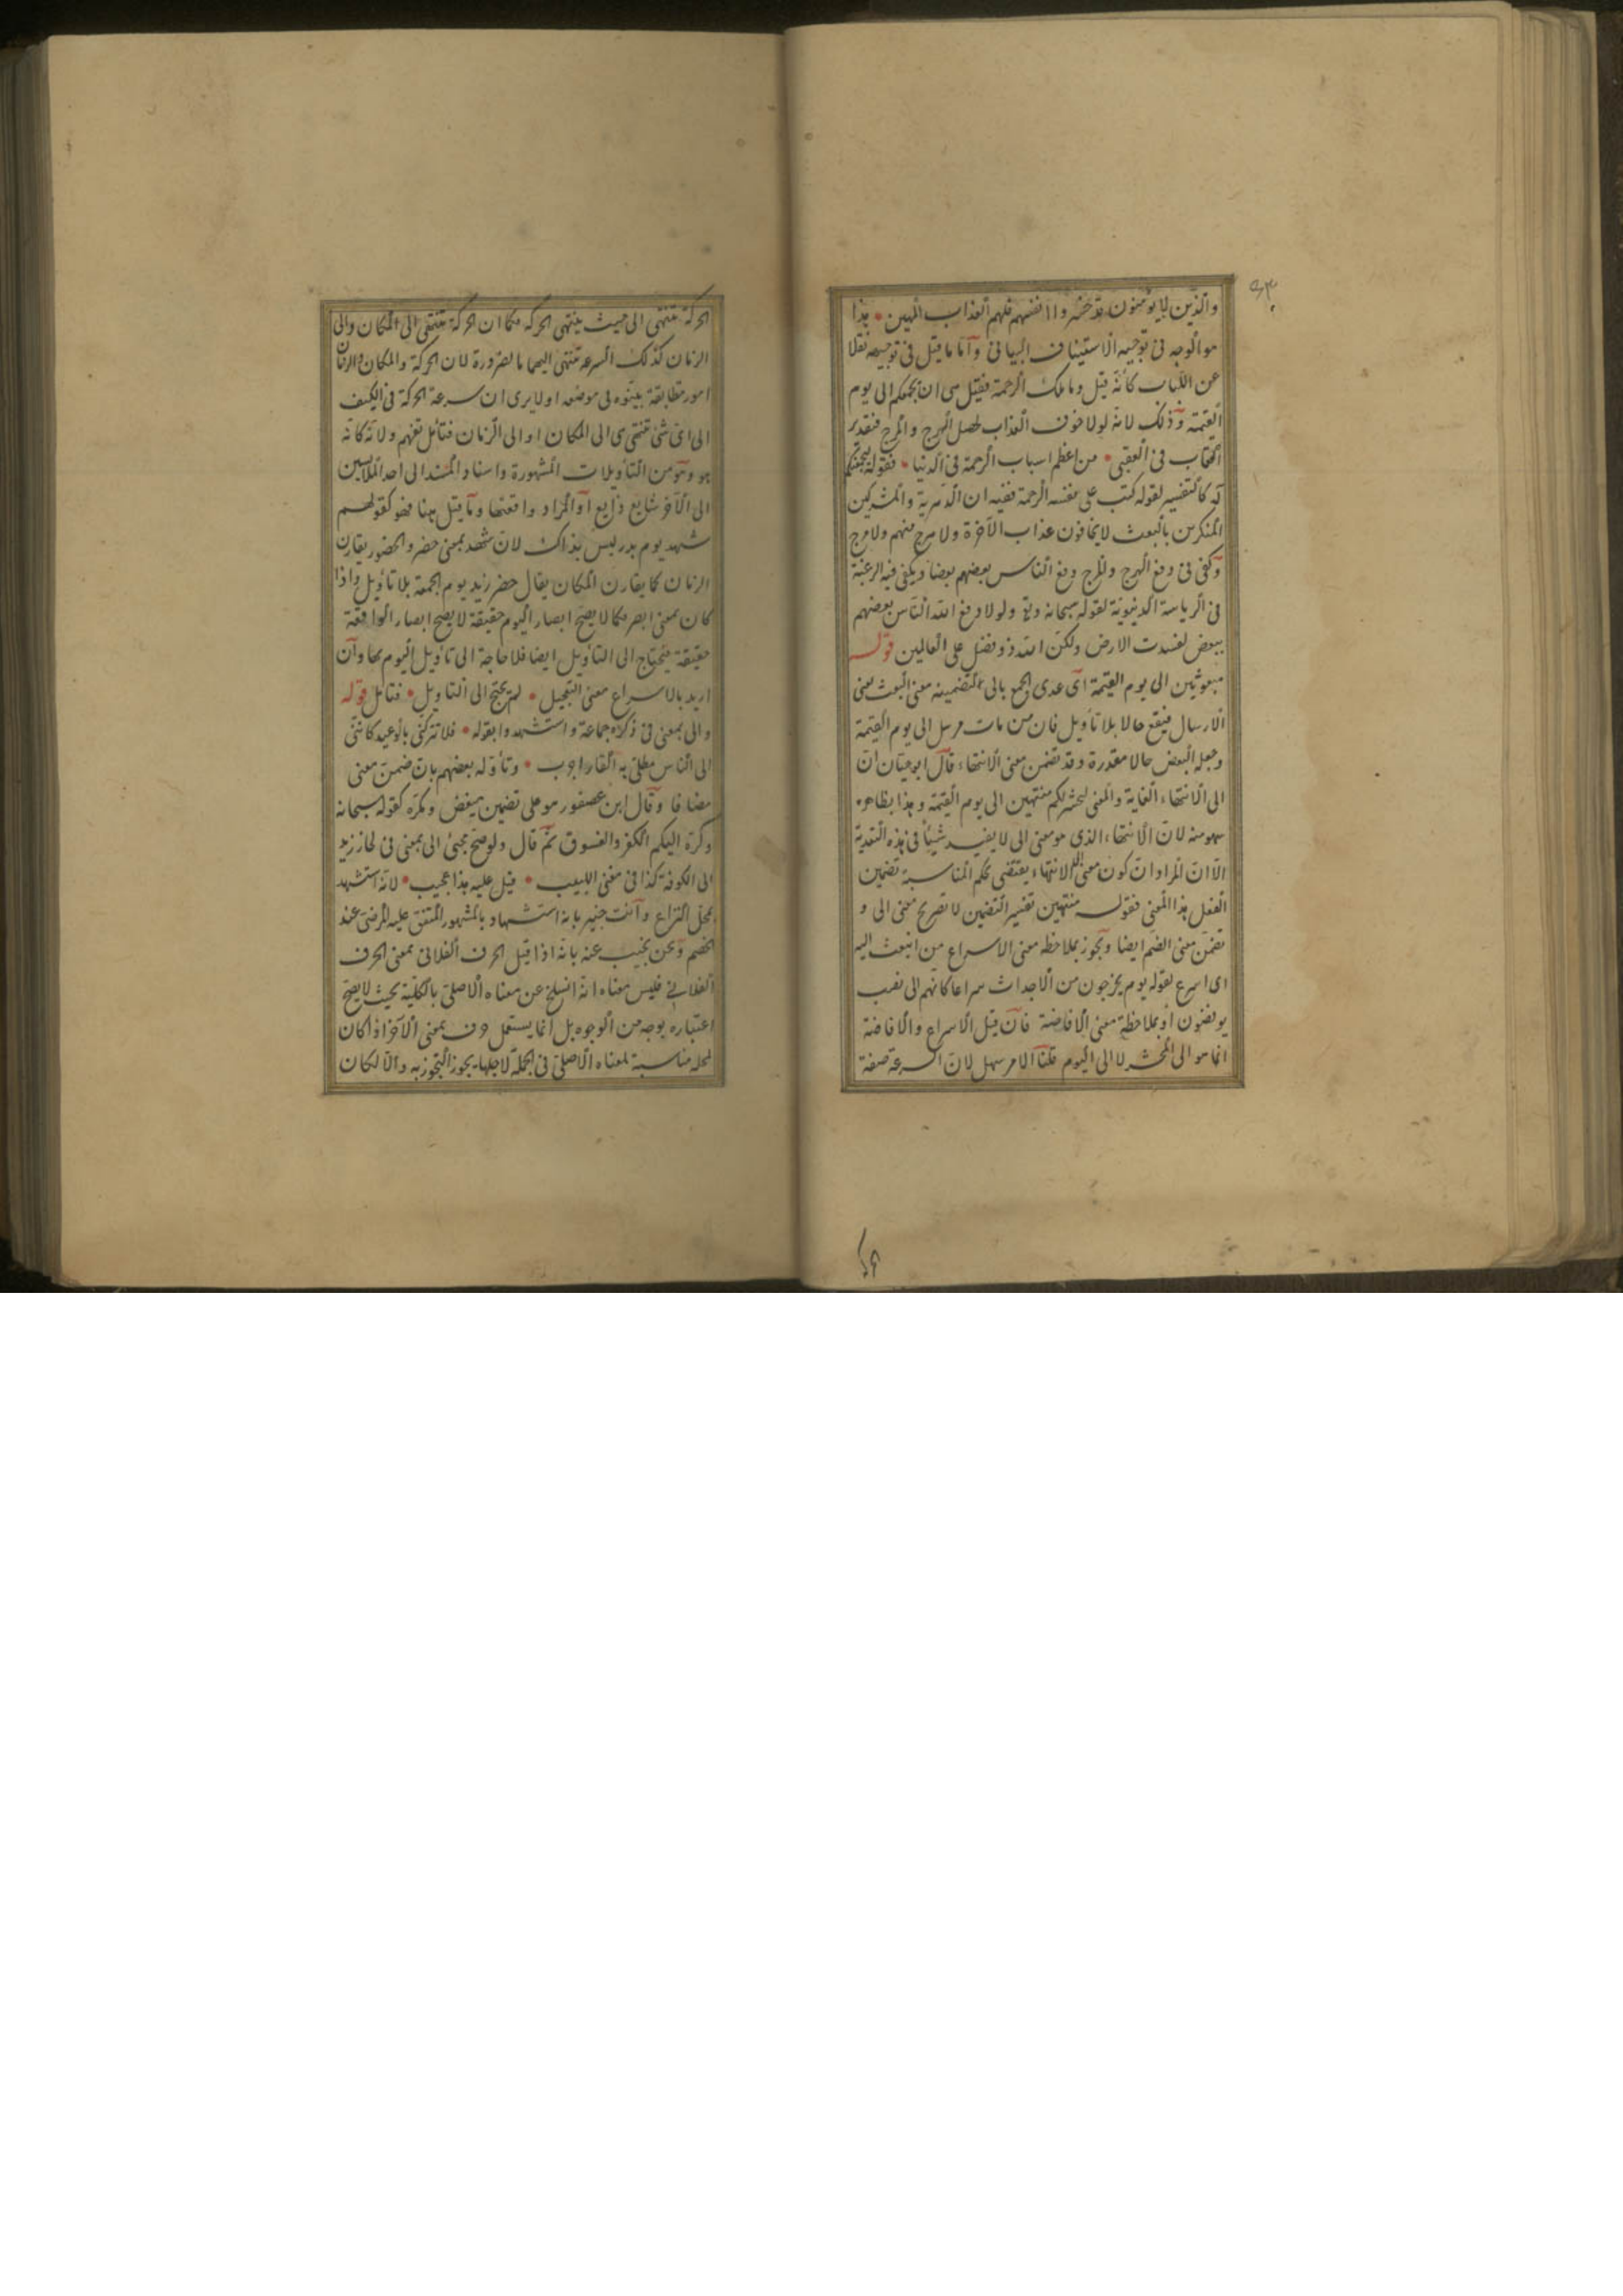 ٤٣
والذين لا يؤمنون قد خسروا انفسهم فلهم العذاب المهين هذا
هو الوجه فى توجيه الاستيناف البيانى واما ما قيل فى توجيهه نقلا
عن اللباب كأنه قيل وما تلك الرحمة فقيل هى ان يجمعكم الى يوم
القيمة وذلك لانه لولا خوف العذاب لحصل الهرج والمرج فتقدير
العقاب فى العقبى من اعظم اسباب الرحمة فى الدنيا فقوله ليجمعنكم
آه كالتفسير لقوله كتب على نفسه الرحمة ففيه ان الدهرية والمشركين
المنكرين بالبعث لا يخافون عذاب الآخرة ولا هرج منهم ولا مرج
وكفى فى دفع الهرج والمرج دفع الناس بعضهم بعضا ويكفى فيه الرغبة
فى الرياسة الدنيوية لقوله سبحانه وتع ولولا دفع الله الناس بعضهم
ببعض لفسدت الارض ولكن الله ذو فضل على العالمين قوله
مبعوثين الى يوم القيمة اى عدى الجمع بالى لتضمينه معنى البعث بمعنى
الارسال فيقع حالا بلا تاويل فان من مات مرسل الى يوم القيمة
وجعله البعض حالا مقدرة وقد تضمن معنى الانتهاء قال ابو حيان ان
الى لانتهاء الغاية والمعنى ليحشرنكم منتهين الى يوم القيمة وهذا بظاهره
سهو منه لان الانتهاء الذى هو معنى الى لا يفيد شيئا فى هذه التعدية
الا ان المراد ان كون معنى الى الانتهاء يقتضى بحكم المناسبة تضمين
الفعل هذا المعنى فقوله منتهين تفسير التضمين لا تصريح معنى الى و
تضمن معنى الضم ايضا ويجوز بملاحظه معنى الاسراع من انبعث اليه
اى اسرع لقوله يوم يخرجون من الاجداث سراعا كانهم الى نصب
يوفضون او بملاحظة معنى الافاضة فان قيل الاسراع والافاضة
انما هو الى المحشر لا الى اليوم قلنا الامر سهل لان السرعة صفة
الحركة تنتهى الى حيث ينتهى الحركه فكما ان الحركة تنتهى الى المكان والى
الزمان كذلك السرعه تنتهى اليهما بالضرورة لان الحركة والمكان والزمان
امور متطابقة بينوه فى موضعه اولا يرى ان سرعة الحركة فى الكيف
الى اى شئ تنتهى هى الى المكان او الى الزمان فتأمل تفهم ولانه كانه
هو وهو من التأويلات المشهورة واسناد المسند الى احد الملابسين
الى الآخر شايع ذايع او المراد واقعتها وما قيل هنا فهو كقولهم
شهد يوم بدر ليس بذاك لان شهد بمعنى حضر والحضور يقارن
الزمان كما يقارن المكان يقال حضر زيد يوم الجمعة بلا تأويل واذا
كان بمعنى ابصر فكما لا يصح ابصار اليوم حقيقة لا يصح ابصار الواقعة
حقيقة فيحتاج الى التأويل ايضا فلا حاجة الى تأويل اليوم بها وان
اريد بالاسراع معنى التعجيل لم يحتج الى التاويل فتامل قوله
والى بمعنى فى ذكره جماعة واستشهدوا بقوله فلا تتركنى بالوعيد كاننى
الى الناس مطلى به القار اجرب وتأوله بعضهم بان ضمن معنى
مضافا وقال ابن عصفور هو على تضمين مبغض ومكره كقوله سبحانه
وكره اليكم الكفر والفسوق ثم قال ولو صح مجئ الى بمعنى فى لجاز زيد
الى الكوفة كذا فى مغنى اللبيب قيل عليه هذا عجيب لانه استشهد
بمحل النزاع وانت خبير بانه استشهاد بالمشهور المتفق عليه المرضى عند
الخصم ونحن نجيب عنه بانه اذا قيل الحرف الفلانى بمعنى الحرف
الفلانى فليس معناه انه انسلخ عن معناه الاصلى بالكلية بحيث لا يصح
اعتباره بوجه من الوجوه بل انما يستعمل حرف بمعنى الآخر اذا كان
لمحله مناسبة لمعناه الاصلى فى الجملة لاجلها يجوز التجوز به والا لكان